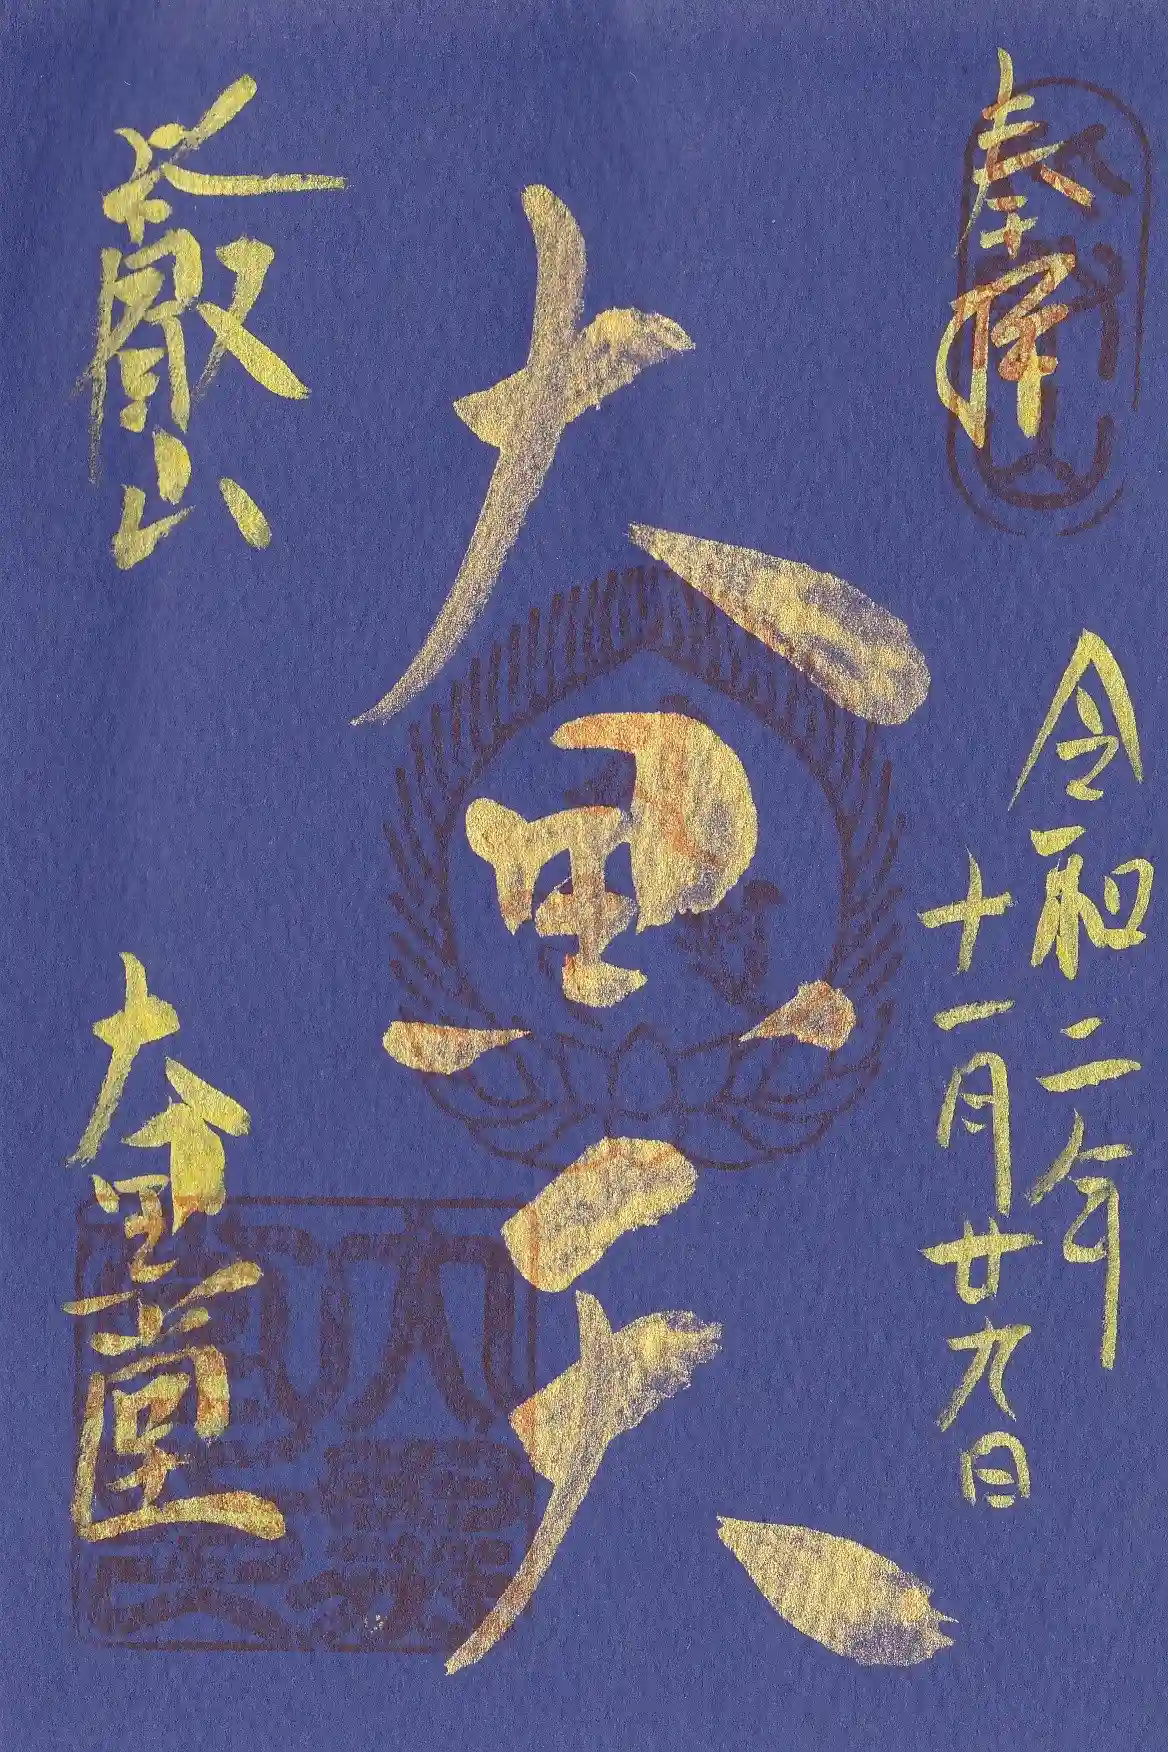 奉拝
令和二年
十一月廿九日
大黒天
叡山
大黒堂